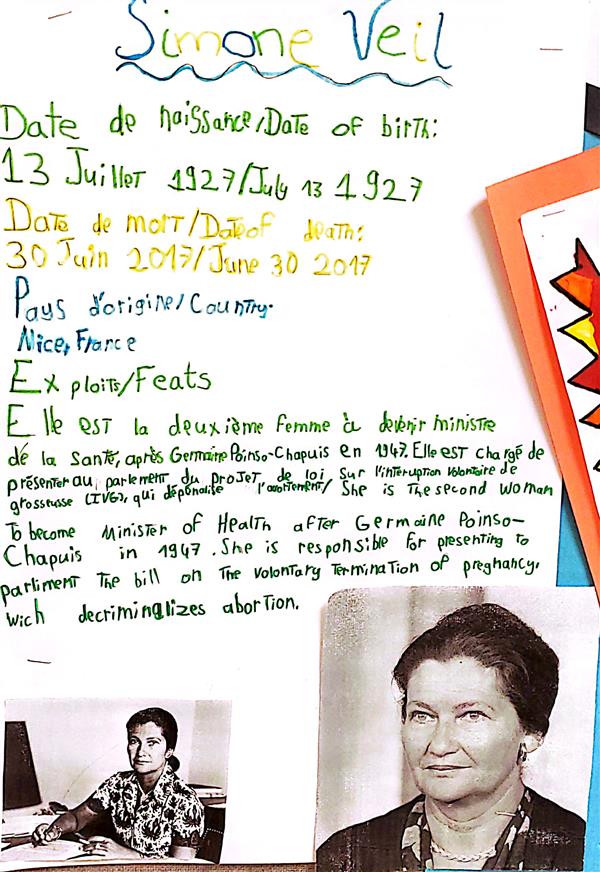 Simone Veil
Date de naissance/Date of birth:
13 Juillet 1927/July 13 1927
Date de mort/Date of death:
30 Juin 2017/June 30 2017
Pays d'origine/Country.
Nice, France
Exploits/Feats
Elle est la deuxième femme à devenir ministre
de la Santé, après Germaine Poinso-Chapuis en 1947. Elle est chargé de
présenter au parlement du projet de loi sur l'interuption volontaire de
grosstusse (IVG), qui dépénalise l'avortement/ She is The second woman
To become Minister of Health after Germaine Poinso-
Chapuis in 1947. She is responsible for presenting to
parliment The bill on The Voluntary Termination of pregnancy.
wich decriminalizes abortion.